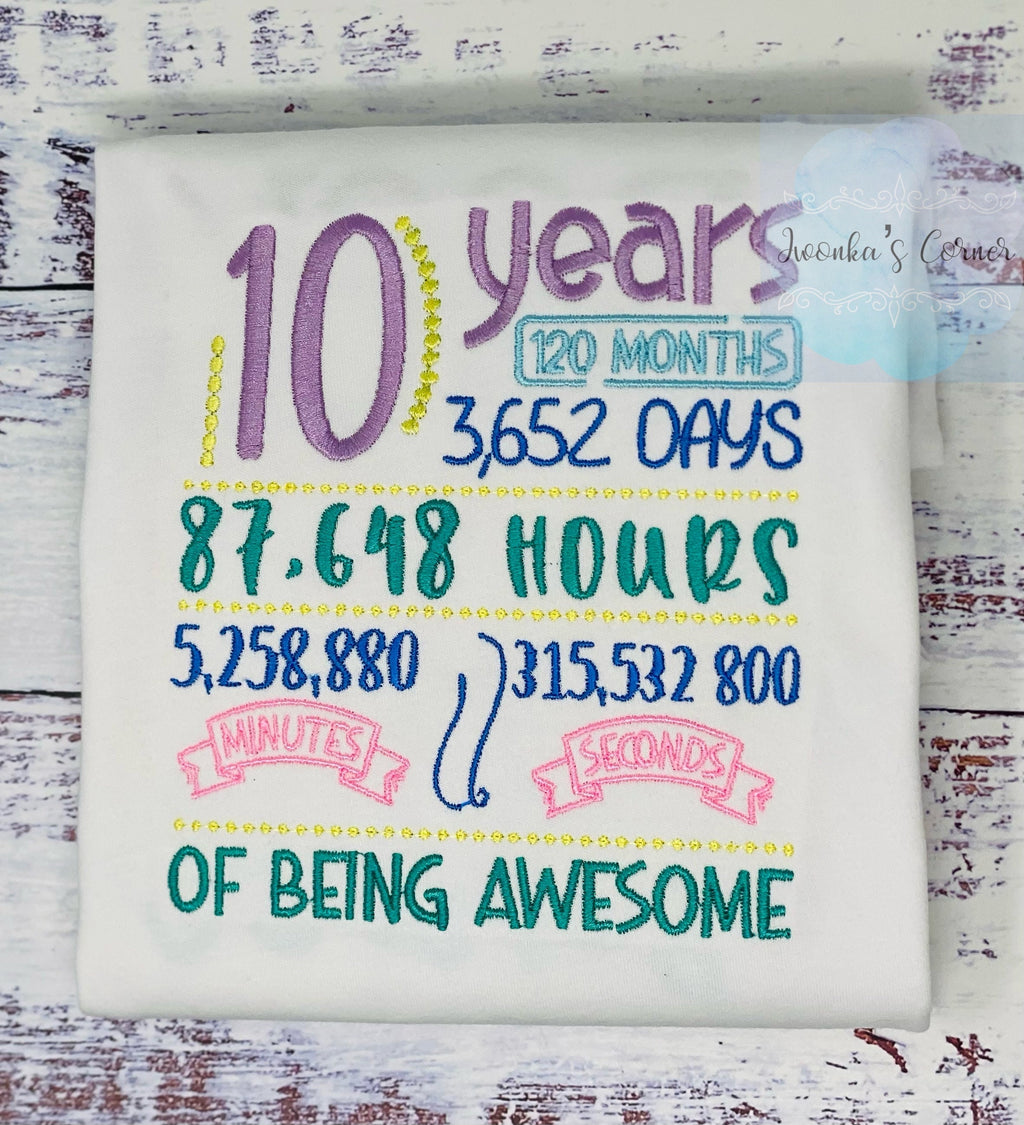 10 years
120 MONTHS
3,652 DAYS
87.648 HOURS
5,258,880 315,532 800
MINUTES SECONDS
OF BEING AWESOME
Iwonka's Corner